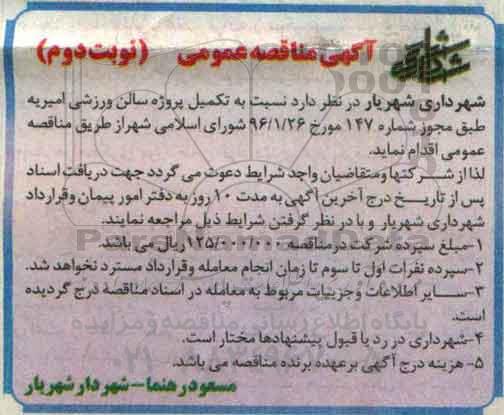 شهرداری شهریار
آگهی مناقصه عمومی (نوبت دوم)
شهرداری شهریار در نظر دارد نسبت به تکمیل پروژه سالن ورزشی امیریه
طبق مجوز شماره ۱۴۷ مورخ ۹۶/۱/۲۶ شورای اسلامی شهر از طریق مناقصه
عمومی اقدام نماید.
لذا از شرکتها و متقاضیان واجد شرایط دعوت می گردد جهت دریافت اسناد
پس از تاریخ درج آخرین آگهی به مدت ۱۰ روز به دفتر امور پیمان و قرارداد
شهرداری شهریار و با در نظر گرفتن شرایط ذیل مراجعه نمایند.
۱-مبلغ سپرده شرکت در مناقصه ۱۲۵/۰۰۰/۰۰۰ ریال می باشد.
۲-سپرده نفرات اول تا سوم تا زمان انجام معامله و قرارداد مسترد نخواهد شد.
۳-سایر اطلاعات و جزییات مربوط به معامله در اسناد مناقصه درج گردیده
است.
۴-شهرداری در رد یا قبول پیشنهادها مختار است.
۵- هزینه درج آگهی بر عهده برنده مناقصه می باشد.
مسعود رهنما-شهردار شهریار